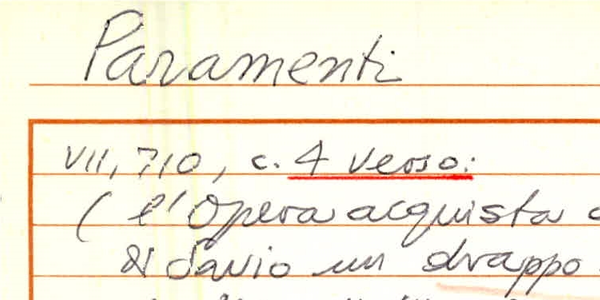 Paramenti
VII, 710, c. 4 verso:
( l'Opera acquista
di Savio un drappo